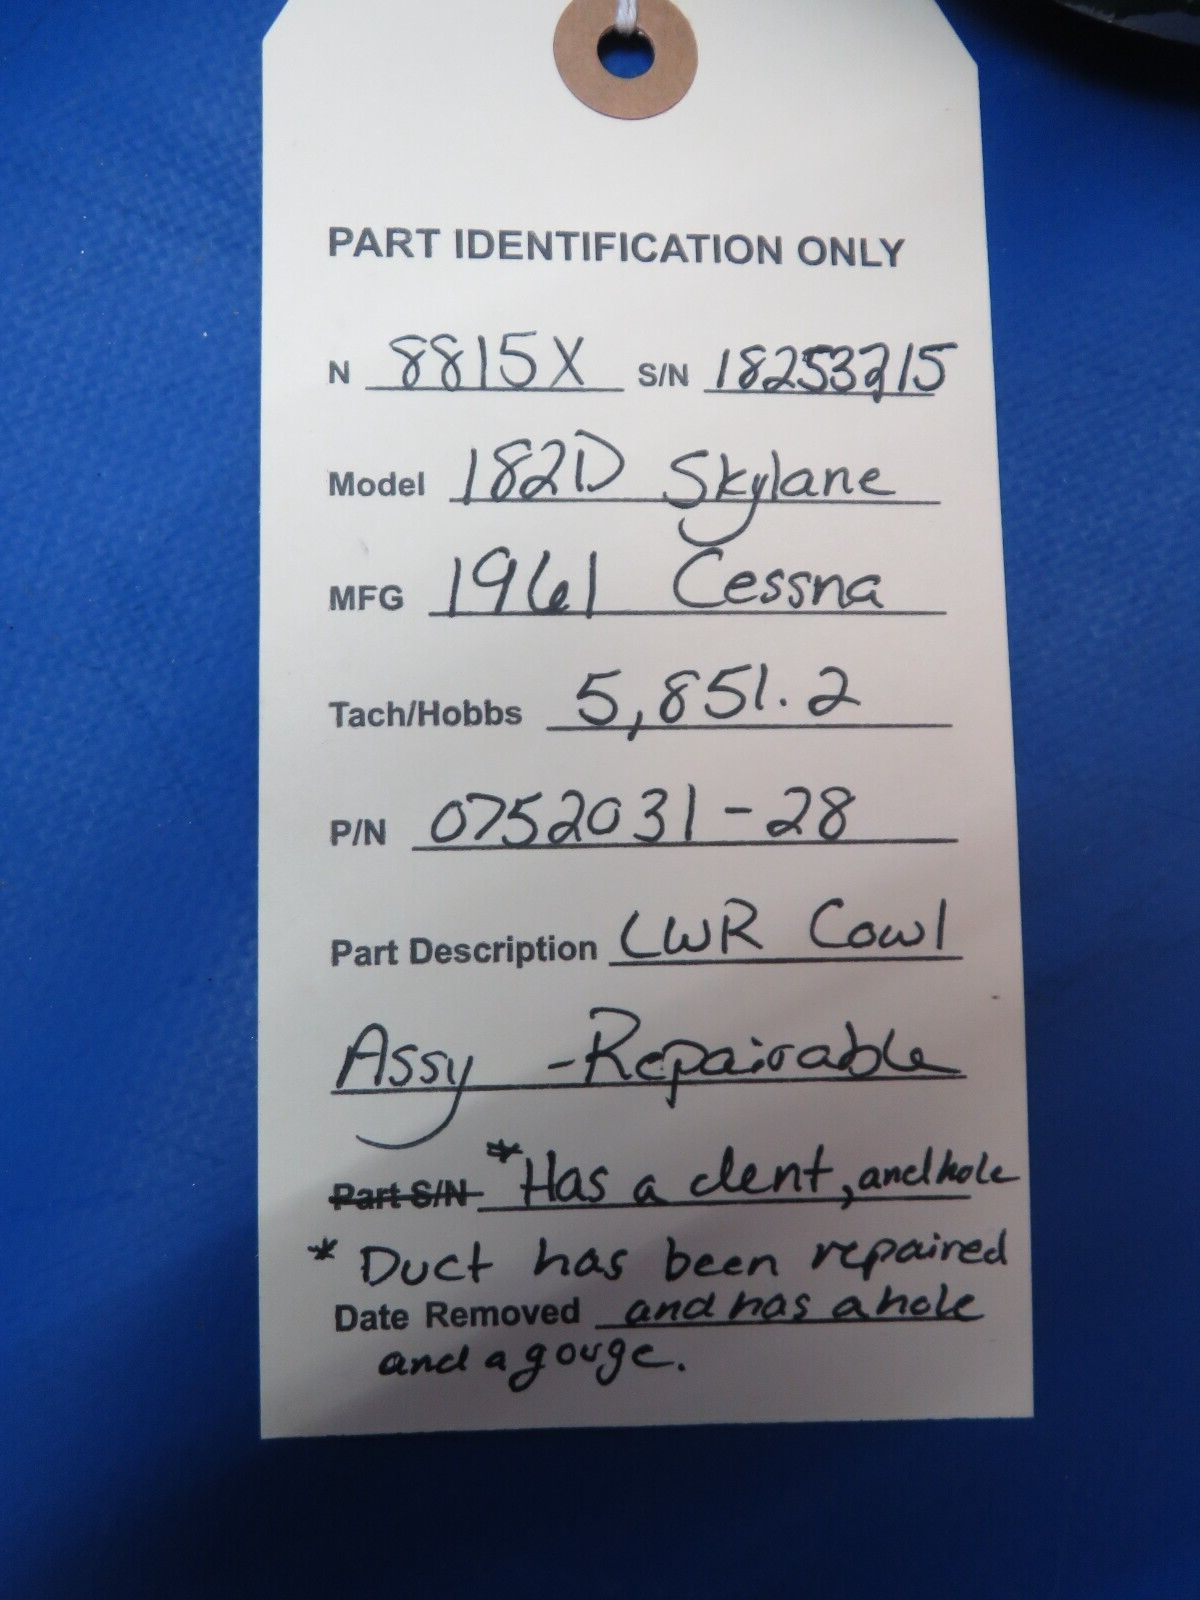 PART IDENTIFICATION ONLY
N 8815X S/N 18253215
Model 182D Skylane
MFG 1961 Cessna
Tach/Hobbs 5,851.2
P/N 0752031-28
Part Description LWR Cowl
Assy - Repairable
Part S/N *Has a dent, and hole
* Duct has been repaired
Date Removed and has a hole
and a gouge.